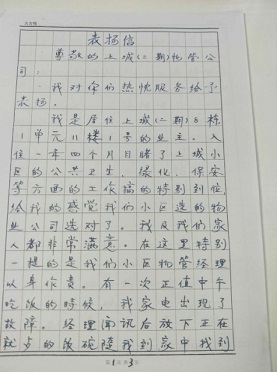 表扬信
尊敬的上城(二期)物管公
司:
我对你们热忱服务给予
表扬。
我是居住上城(二期)8栋
1单元11楼1号的业主。入
住一年四个月目睹了上城小
区的公共卫生、绿化、保安
等方面的工作搞的特别到位
给我的感觉我们小区选的物
业公司选对了。我及我们家
人都非常满意。在这里特别
一提的是我们小区物管经理
以身作责。有一次正值中午
吃饭的时候,我家电出现了
故障。经理闻讯后放下正在
就步的饭碗陪我到家中找到
第1页 共3页